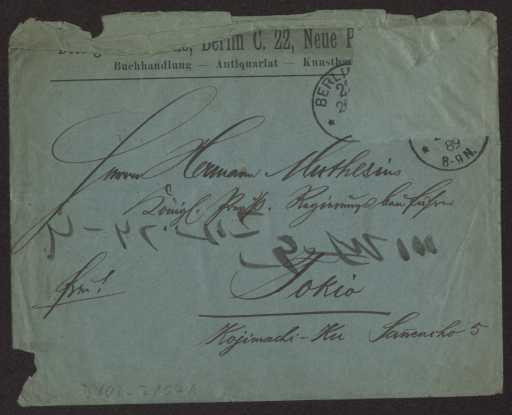 Berlin C. 22, Neue
Buchhandlung — Antiquariat —
BERLIN
89
8-9N.
Herrn Hermann Muthesius
Königl. Preuß. Regierungsbauführer
frei!
Tokio
Kojimachi-Ku Sanencho 5